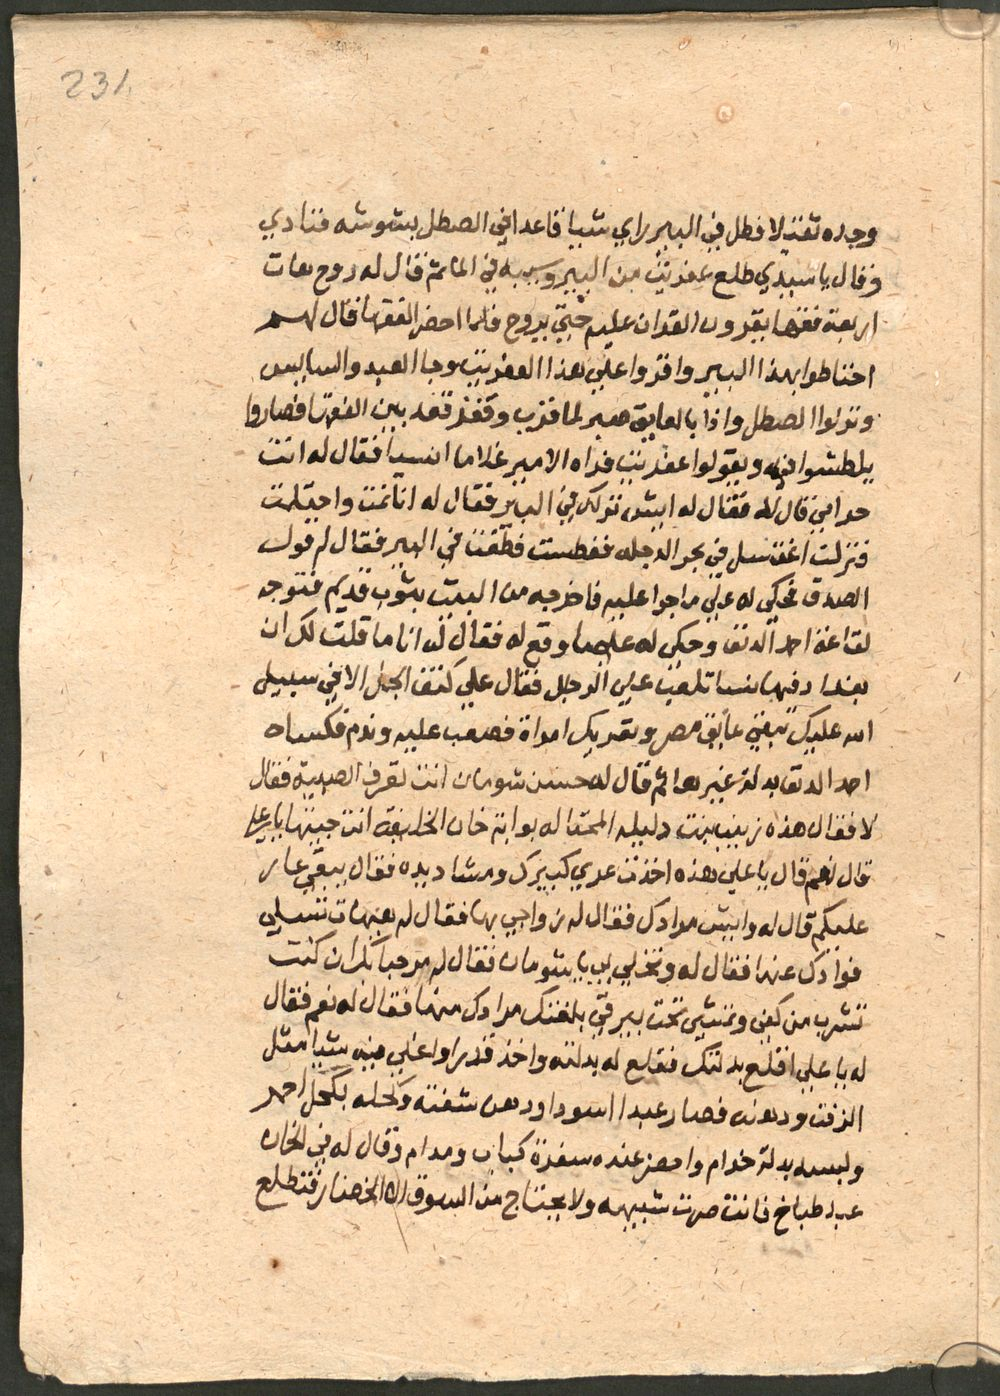 231
وجده تقيلا فطل في البير راي شيا قاعد في الصطل بشوشه فنادي
وقال يا سيدي طلع عفريت من البير وسربه في الماتم فقال له روح هات
اربعة فقها يقرون القران عليه حتي يروح فلما احضر الفقها قال لهم
احتاطوا بهذا البير واقروا علي هذا العفريت وجا العبد والسايس
ونزلوا الصطل واذا بالعايق صبر لما قرب وقفز قعد بين الفقها فصاروا
يلطشوا فيه ويقولوا عفريت فراه الامير غلاما انسيا فقال له انت
حرامي قال لا فقال له ايش نزلك في البير فقال له انا نمت واحتلمت
فنزلت اغتسل في بحر الدجله فغطست فطقت في البير فقال له قول
الصدق فحكي له علي ما جرا عليه فاخرجه من البيت بثوب قديم فتوجه
لقاعة احمد الدنف وحكي له علي ما وقع له فقال له انا ما قلت لك ان
بغداد فيها نسا تلعب علي الرجال فقال علي كتف الجمل الا في سبيل
الله عليك تبقي عايق مصر وتعريك امراة فصعب عليه وندم فكساه
احمد الدنف بدلة غيرها ثم قال له حسن شومان انت تعرف الصبية فقال
لا فقال هذه زينب بنت دليله المحتاله بوابة خان الخليفه انت حبيتها يا علي
قال نعم قال يا علي هذه اخذت عري كبيرك ومشاديده فقال يبقي عار
عليكم قال له وايش مرادك فقال له زواجي بها فقال له هيهات تتسلي
فوادك عنها فقال له وتحيلي ايه يا شومان فقال له مرحبا بك ان كنت
تشرب من كفي وتمشي تحت بيرقي بلغتك مرادك منها فقال له نعم فقال
له يا علي اقلع بدلتك فقلع له بدلته واخذ قدرا واغلي فيه شيا مثل
الزفت ودهنه فصار عبدا اسودا ودهن شفته وكحله بكحل احمر
ولبسه بدلة خدام واحضر عنده سفرة كباب ومدام وقال له في الخان
عبد طباخ فانت صرت شبيهه ولا يحتاج من السوق الا الخضار فتطلع